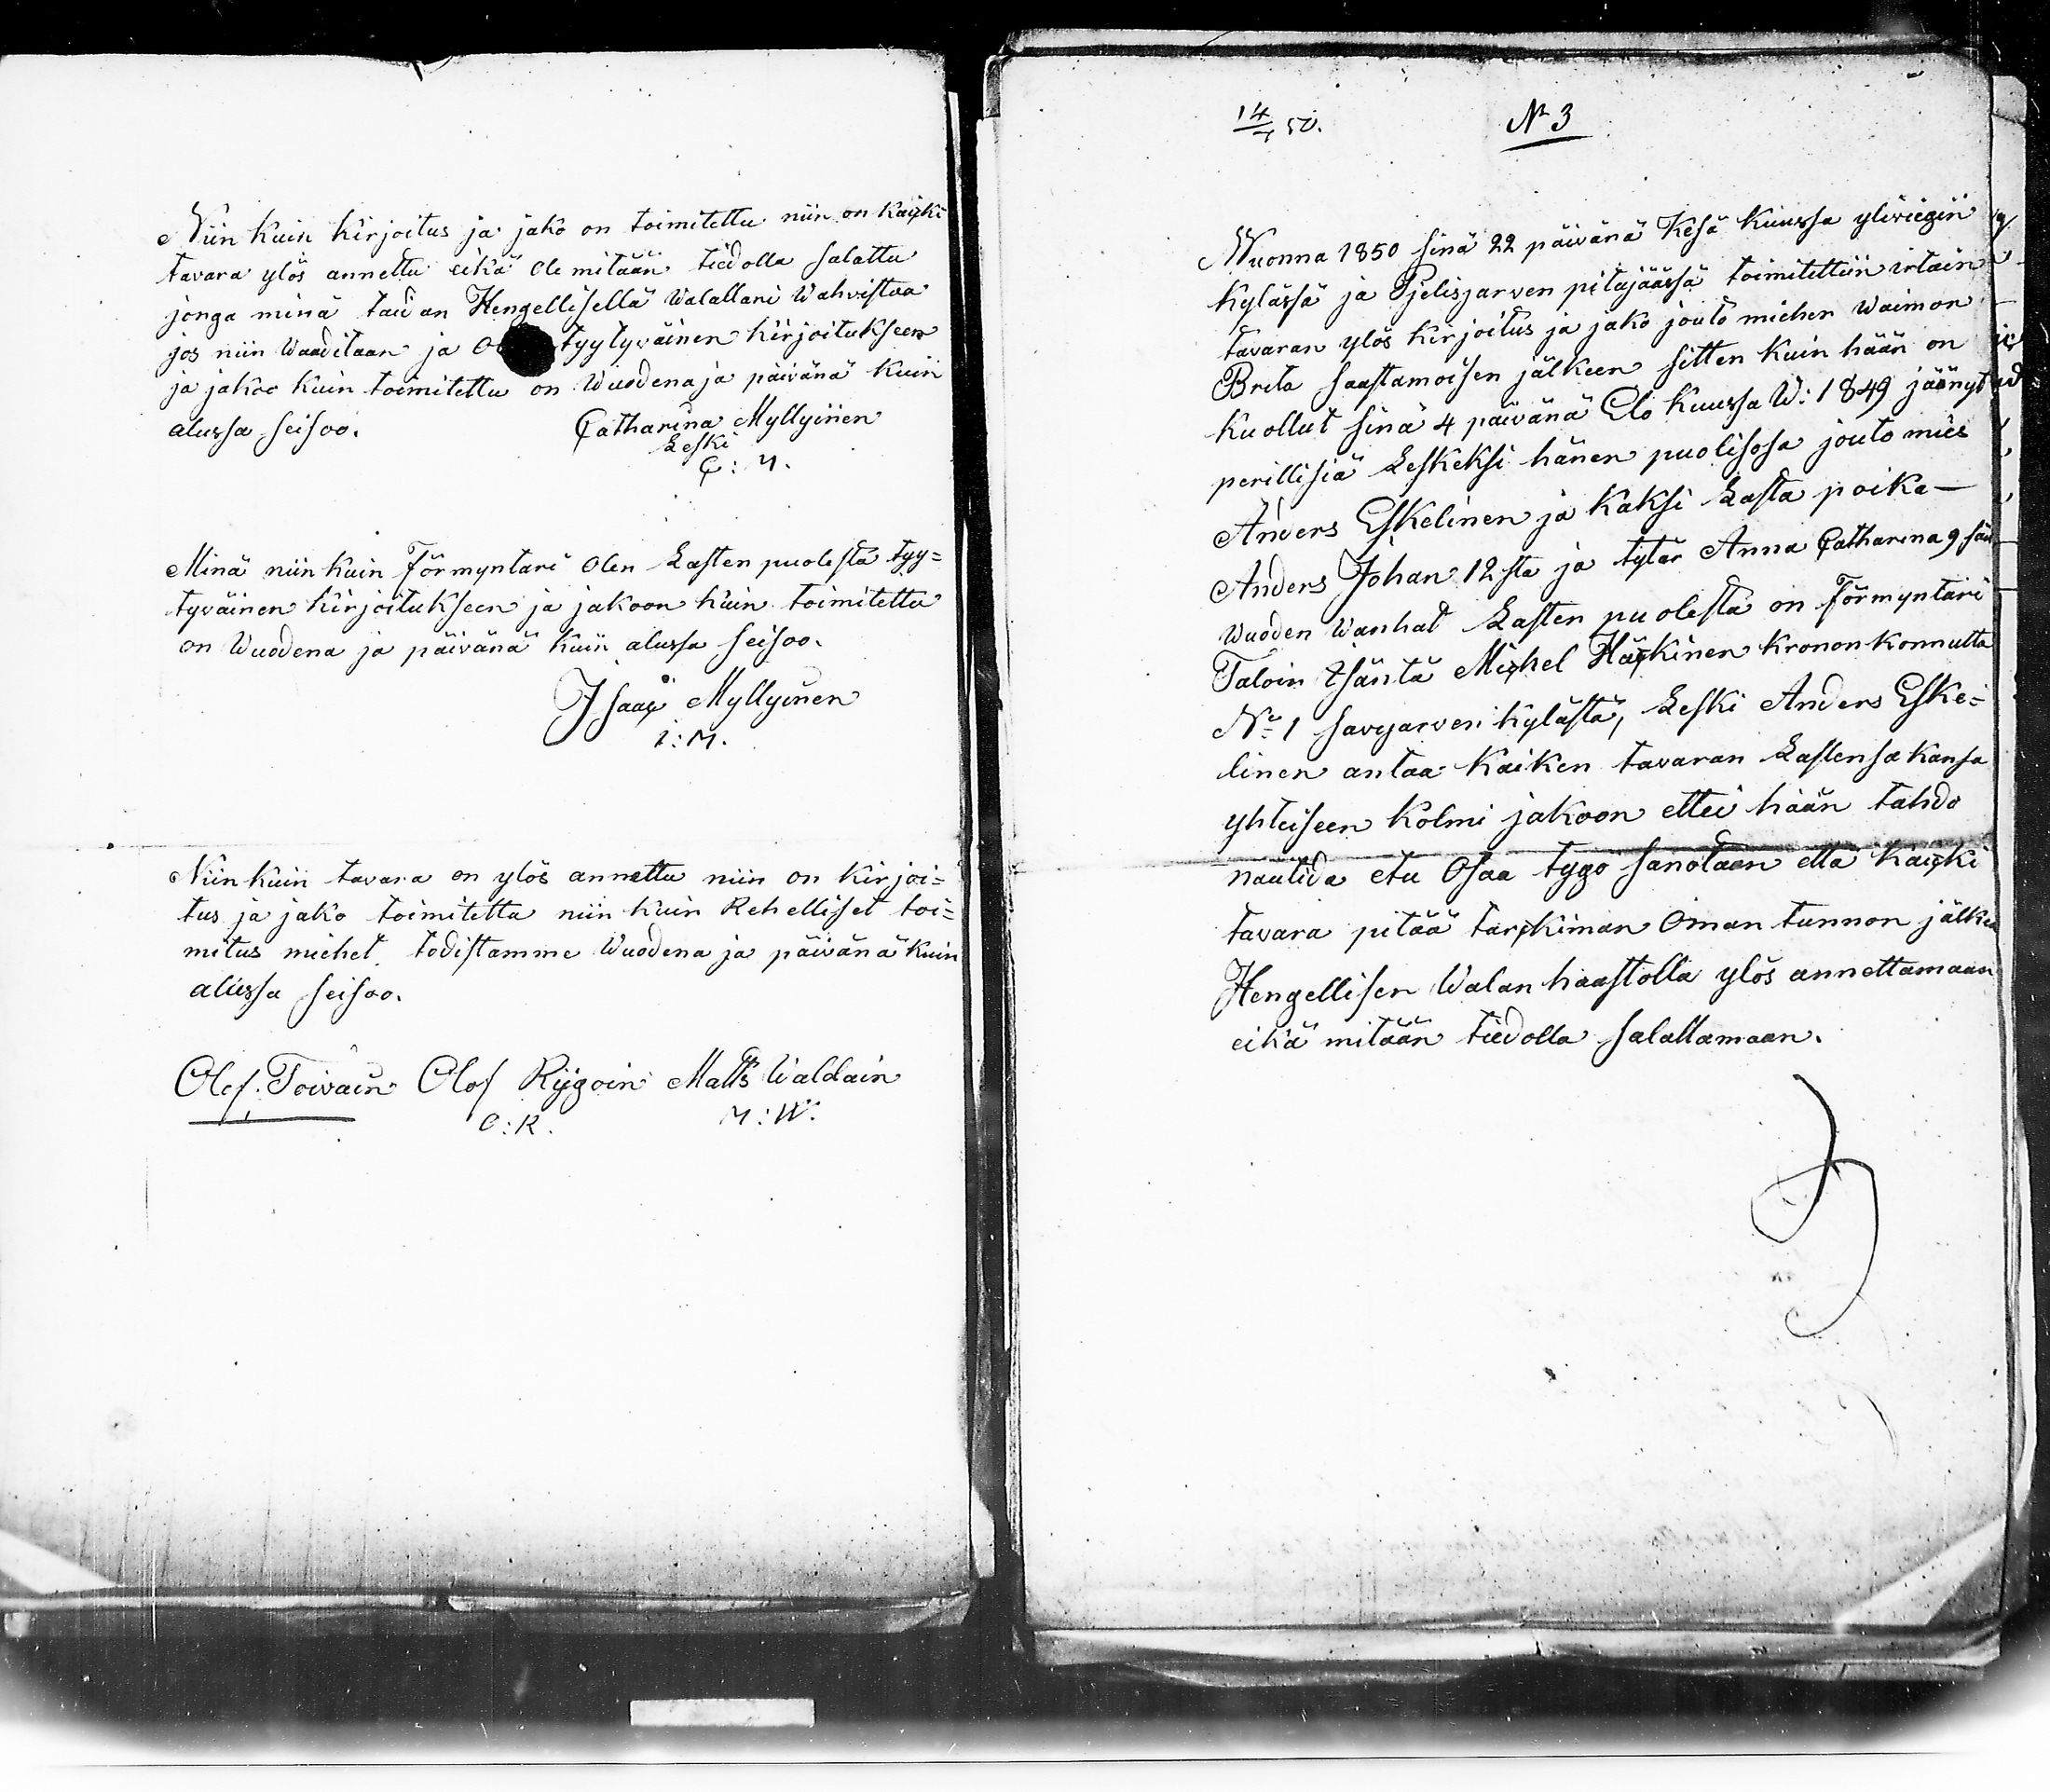 Niin kuin kirjoitus ja jako on toimitettu niin on kaicki
tavara ylös annettu eikä ole mitään tiedolla salattu
jonga minä taidan Hengellisellä Walallani Wahvistaa
jos niin Waaditaan ja tyytyväinen kirjoitukseen
ja jakoo kuin toimitettu on Wuodena ja päivänä kuin
alussa seisoo. Catharina Myllyinen
Leski
C: M.
Minä niin kuin Förmyntäri olen Lasten puolesta tyy=
tyväinen kirjoitukseen ja jakoon kuin toimitettu
on Wuodena ja päivänä kuin alussa seisoo.
Isaac Myllyinen
I: M.
Niin kuin tavara on ylös annettu niin on kirjoi=
tus ja jako toimitettu niin kuin Rehelliset toi=
mitus miehet todistamme Wuodena ja päivänä kuin
alussa seisoo.
Olof Toivain Olof Rygoin Matts Waldain
O: R. M: W.
14/7 50.
No 3
Wuonna 1850 sinä 22 päivänä Kesä kuussa yliviegin
kylässä ja Pjelisjarven pitäjäässä toimitettiin irtain
tavaran ylös kirjoitus ja jako jouto miehen Waimon
Brita Saastamoisen jälkeen sitten kuin hään on
kuollut sinä 4 päivänä Elo kuussa W: 1849 jäänyt
perillisiä Leskeksi hänen puolisosa jouto mies
Anders Eskelinen ja kaksi Lasta poika
Anders Johan 12sta ja tytär Anna Catharina 9sän
Wuoden Wanhat Lasten puolesta on Förmyntäri
Taloin Isäntä Michel Häckinen kronon konnutta
No 1 Savyarven kylästä, Leski Anders Eske=
linen antaa kaiken tavaran Lastensa kansa
yhteiseen kolmi jakoon ettei hään tahdo
nautida etu Osaa tygö sanotaan että kaicki
tavara pitää tarckiman Oman tunnon jälken
Hengellisen Walan haastolla ylös annettamaan
eikä mitään tiedolla salattamaan.